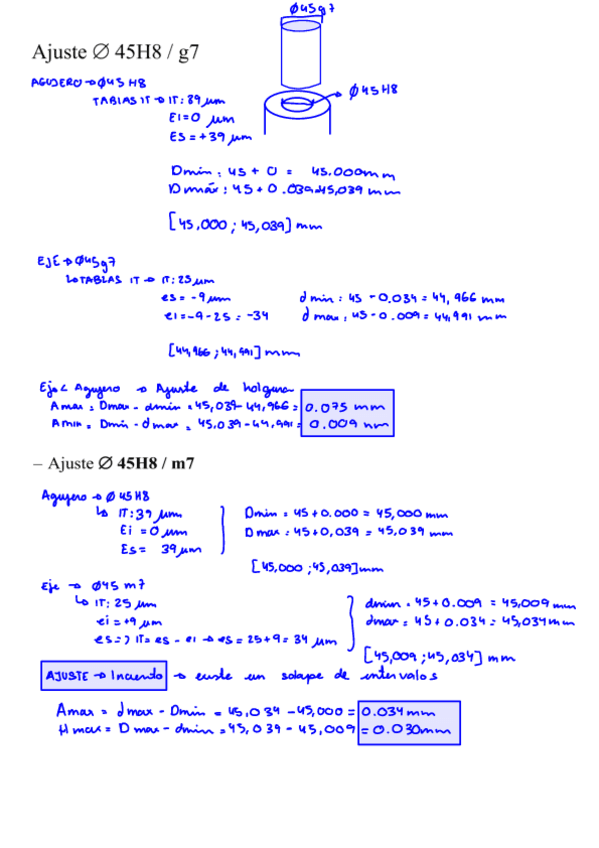 Ø45g7
Ajuste ∅ 45H8 / g7
AGUJERO → Ø45 H8
Ø45H8
TABLAS IT → IT: 39 μm
Ei=0 μm
Es = +39 μm
Dmin: 45 + 0 = 45.000mm
Dmáx: 45 + 0.039=45,039 mm
[45,000 ; 45,039] mm
EJE → Ø45g7
↳ TABLAS IT → IT: 25 μm
es = -9 μm
ei = -9 - 25 = -34
dmin: 45 - 0.034 = 44,966 mm
dmax: 45 - 0.009 = 44,991 mm
[44,966 ; 44,991] mm
Eje < Agujero → Ajuste de holgura
Amax = Dmax - dmin = 45,039 - 44,966 = 0.075 mm
Amin = Dmin - dmax = 45.039 - 44,991 = 0.009 mm
– Ajuste ∅ 45H8 / m7
Agujero → Ø45H8
↳ IT: 39 μm
Ei = 0 μm
Es = 39 μm
Dmin = 45 + 0.000 = 45,000 mm
Dmax: 45+0,039 = 45,039 mm
[45,000 ; 45,039] mm
Eje → Ø45 m7
↳ IT: 25 μm
ei = +9 μm
es = ? IT = es - ei → es = 25+9 = 34 μm
dmin = 45 + 0.009 = 45,009 mm
dmax = 45 + 0.034 = 45,034 mm
[45,009 ; 45,034] mm
AJUSTE → Incierto → existe un solape de intervalos
Amax = dmax - Dmin = 45,034 - 45,000 = 0.034 mm
Hmax = Dmax - dmin = 45,039 - 45,009 = 0.030mm